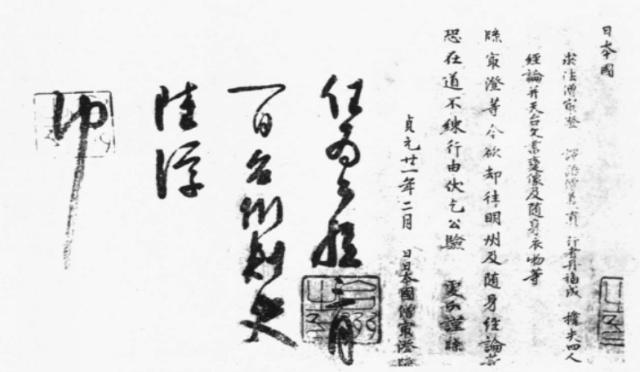 日本國
求法僧最澄 譯語僧義真 行者丹福成 擔夫四人
經論并天台文書變像及随身衣物等
牒最澄等今欲却往明州及随身經論等
恐在道不練行由伏乞公驗 處分謹牒
貞元廿一年二月 日日本國僧最澄牒
任為公驗三月
一日台州刺史
陸淳
印